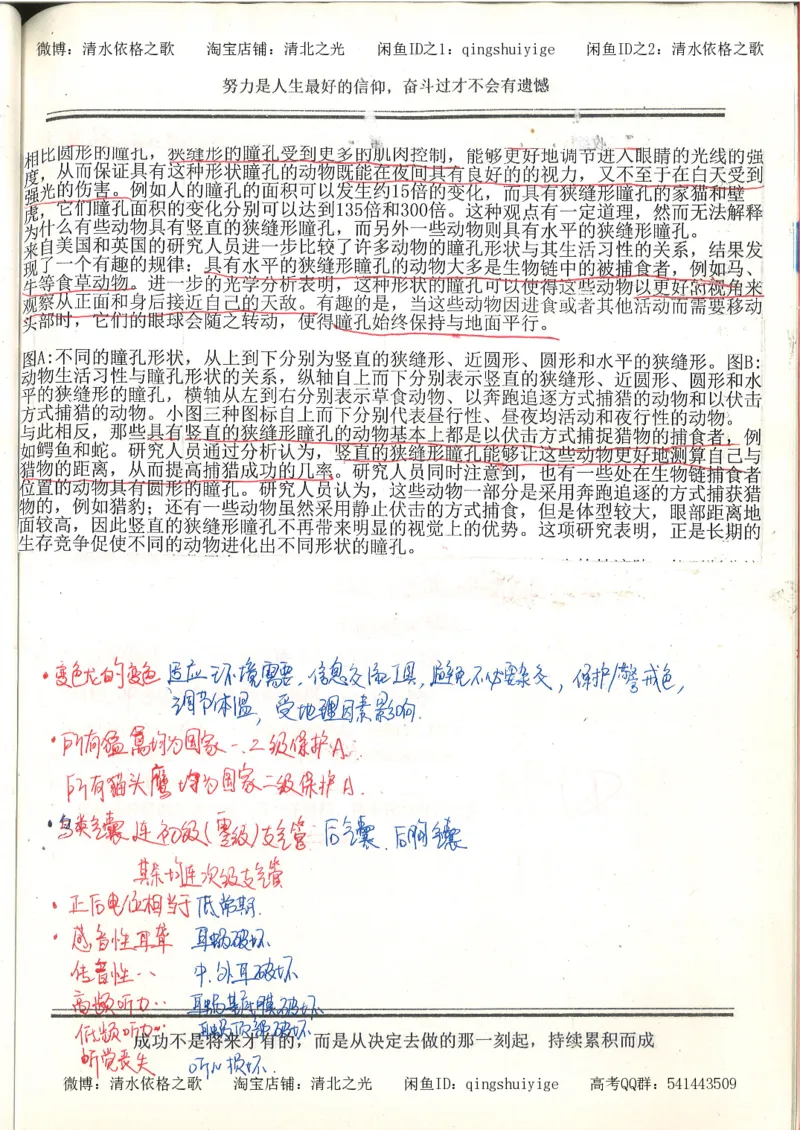 微博：清水依格之歌 淘宝店铺：清北之光 闲鱼ID之1：qingshuiyige 闲鱼ID之2：清水依格之歌
努力是人生最好的信仰，奋斗过才不会有遗憾
相比圆形的瞳孔，狭缝形的瞳孔受到更多的肌肉控制，能够更好地调节进入眼睛的光线的强
度，从而保证具有这种形状瞳孔的动物既能在夜间具有良好的的视力，又不至于在白天受到
强光的伤害。例如人的瞳孔的面积可以发生约15倍的变化，而具有狭缝形瞳孔的家猫和壁
虎，它们瞳孔面积的变化分别可以达到135倍和300倍。这种观点有一定道理，然而无法解释
为什么有些动物具有竖直的狭缝形瞳孔，而另外一些动物则具有水平的狭缝形瞳孔。
来自美国和英国的研究人员进一步比较了许多动物的瞳孔形状与其生活习性的关系，结果发
现了一个有趣的规律：具有水平的狭缝形瞳孔的动物大多是生物链中的被捕食者，例如马、
牛等食草动物。进一步的光学分析表明，这种形状的瞳孔可以使得这些动物以更好的视角来
观察从正面和身后接近自己的天敌。有趣的是，当这些动物因进食或者其他活动而需要移动
头部时，它们的眼球会随之转动，使得瞳孔始终保持与地面平行。
图A：不同的瞳孔形状，从上到下分别为竖直的狭缝形、近圆形、圆形和水平的狭缝形。图B：
动物生活习性与瞳孔形状的关系，纵轴自上而下分别表示竖直的狭缝形、近圆形、圆形和水
平的狭缝形的瞳孔，横轴从左到右分别表示草食动物、以奔跑追逐方式捕猎的动物和以伏击
方式捕猎的动物。小图三种图标自上而下分别代表昼行性、昼夜均活动和夜行性的动物。
与此相反，那些具有竖直的狭缝形瞳孔的动物基本上都是以伏击方式捕捉猎物的捕食者，例
如鳄鱼和蛇。研究人员通过分析认为，竖直的狭缝形瞳孔能够让这些动物更好地测算自己与
猎物的距离，从而提高捕猎成功的几率。研究人员同时注意到，也有一些处在生物链捕食者
位置的动物具有圆形的瞳孔。研究人员认为，这些动物一部分是采用奔跑追逐的方式捕获猎
物的，例如猎豹；还有一些动物虽然采用静止伏击的方式捕食，但是体型较大，眼部距离地
面较高，因此竖直的狭缝形瞳孔不再带来明显的视觉上的优势。这项研究表明，正是长期的
生存竞争促使不同的动物进化出不同形状的瞳孔。
·变色龙的变色 适应环境需要，信息交流工具，避免不必要杂交，保护/警戒色，
调节体温，受地理因素影响.
·所有猛禽均为国家一、二级保护A.
所有猫头鹰均为国家二级保护A.
·鸟类气囊 连初级（零级）支气管 后气囊、后胸气囊
其余均连次级支气管
·正后电位相当于低常期.
·感音性耳聋 耳蜗破坏
传音性·· 中、外耳破坏
高频听力·· 耳蜗基底膜破坏
低频听力·· 耳蜗顶部破坏
成功不是将来才有的，而是从决定去做的那一刻起，持续累积而成
听觉丧失 听N损坏.
微博：清水依格之歌 淘宝店铺：清北之光 闲鱼ID：qingshuiyige 高考QQ群：541443509